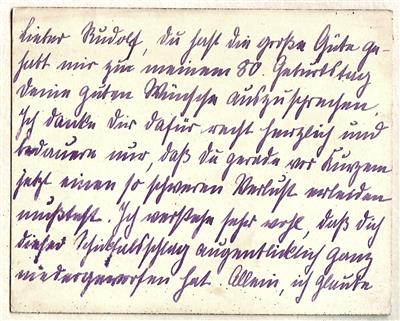 Lieber Rudolf, du hast die große Güte ge-
habt mir zu meinem 80. Geburtstag
Deine guten Wünsche auszusprechen.
Ich danke Dir dafür recht herzlich und
bedauere nur, daß du gerade vor Kurzem
jetzt einen so schweren Verlust erleiden
mußtest. Ich verstehe sehr wohl, daß dich
dieser Schicksalsschlag augenblicklich ganz
niedergeworfen hat. Allein, ich glaube